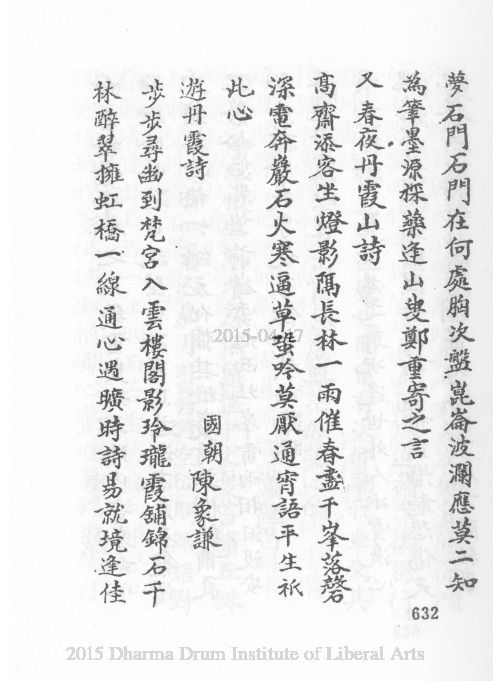 夢石門石門在何處胸次盤崑崙波瀾應莫二知
為筆墨源採藥逢山叟鄭重寄之言
又春夜丹霞山詩
高齋添客坐燈影隔長林一雨催春盡千峯落磬
深電奔巖石火寒逼草蛩吟莫厭通宵語平生祇
此心
遊丹霞詩
國朝陳象謙
步步尋幽到梵宮入雲樓閣影玲瓏霞舖錦石千
林醉翠擁虹橋一線通心遇曠時詩易就境逢佳
632
2015-04-07
2015 Dharma Drum Institute of Liberal Arts